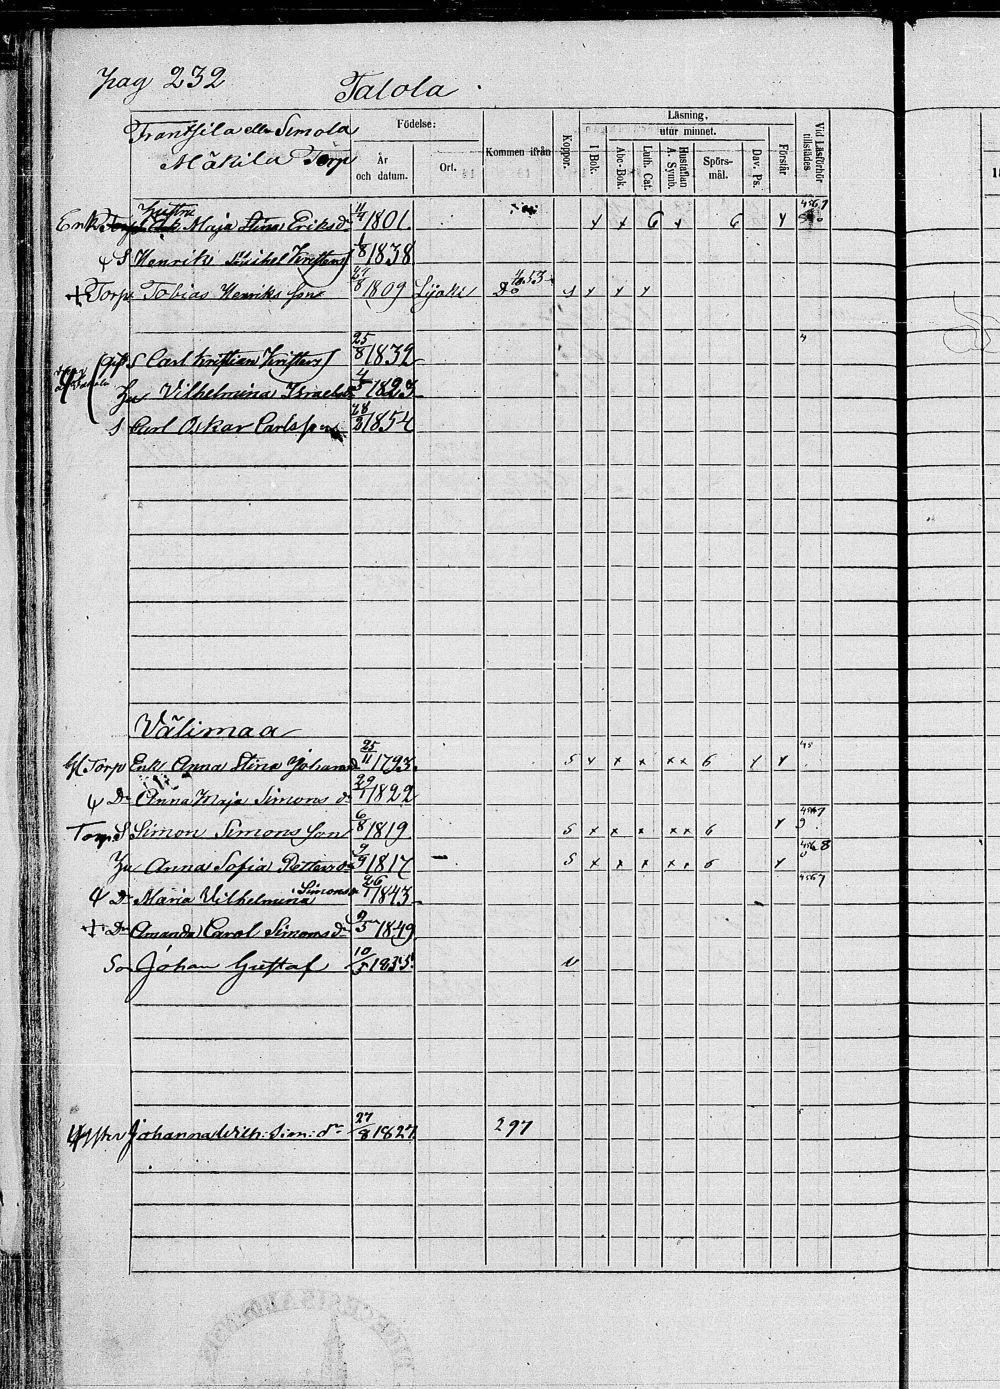 pag 232 Talola
Frantsila eller Simola
Mäkila Torp
Födelse:
År och datum.
Ort.
Kommen ifrån
Koppor.
Läsning,
I Bok.
utur minnet.
Abc-Bok.
Luth. Cat.
Hustaflan A. Symb.
Spörs-mål.
Dav. Ps.
Förstår
Vid Läsförhör tillstädes
Hustru
Enk Maja Stina Eriksd. 1801. x x 6 x 6 x 4567
S Henrik Mikel Kristerss 6/8 1838
+ Torp Tobias Henriks son 27/8 1809 Lijoki 53 s x x x
gift S Carl Kristian Kristerss 25/8 1832
Hu Vilhelmina Israelsd 4/5 1823
S Carl Oskar Carlsson 28/2 1854
Välimaa
Torp Enk Anna Stina Johansd 25/11 1793. S x x x xx 6 x x 45
Dr Anna Maja Simons dr 29/1 1822
Torp. S Simon Simons son 6/8 1819 S x x x xx 6 x 4567
Hu Anna Sofia Pettersdr 9/9 1817 – S x x x xx 6 x 4568
Dr Maria Vilhelmina Simonsdr 26/1 1843 4567
+ Dr Amanda Carol Simonsdr 9/5 1849
So Johan Gustaf 10/5 1855. v
Johanna Wilh: Sim: dr 27/8 1827. 297